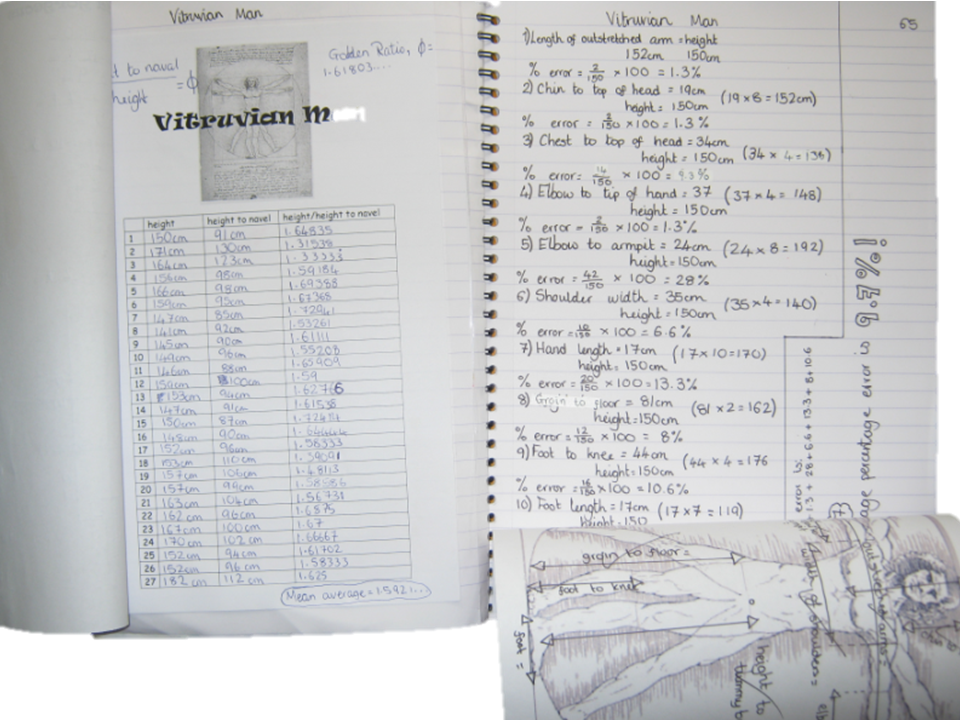 Vitruvian Man
Golden Ratio, φ=
1.61803....
t to naval
height
=φ
Vitruvian M
height height to navel height/height to navel
1 150cm 91cm 1.64835
2 171cm 130cm 1.31538
3 164cm 123cm 1.33333
4 156cm 98cm 1.59184
5 166cm 98cm 1.69388
6 159cm 95cm 1.67368
7 147cm 85cm 1.72941
8 141cm 92cm 1.53261
9 145cm 90cm 1.61111
10 149cm 96cm 1.55208
11 146cm 88cm 1.65909
12 159cm 100cm 1.59
13 153cm 94cm 1.62766
14 147cm 91cm 1.61538
15 150cm 87cm
16 148cm 90cm
17 152cm 96cm 1.58333
18 153cm 110cm 1.39091
19 157cm 106cm 1.48113
20 157cm 99cm 1.58586
21 163cm 104cm 1.56731
22 162cm 96cm 1.6875
23 167cm 100cm 1.67
24 170cm 102cm 1.66667
25 152cm 94cm 1.61702
26 152cm 96cm 1.58333
27 182cm 112cm 1.625
Mean average = 1.5921...
Vitruvian Man
65
1) Length of outstretched arm = height
152cm 150cm
% error = 2/150 × 100 = 1.3%
2) Chin to top of head = 19cm
height = 150cm (19 × 8 = 152cm)
% error = 2/150 × 100 = 1.3%
3) Chest to top of head = 34cm
height = 150cm (34 × 4 = 136)
% error = 14/150 × 100 = 9.3%
4) Elbow to tip of hand = 37 (37 × 4 = 148)
height = 150cm
% error = 2/150 × 100 = 1.3%
5) Elbow to armpit = 24cm (24 × 8 = 192)
height = 150cm
% error = 42/150 × 100 = 28%
6) Shoulder width = 35cm (35 × 4 = 140)
height = 150cm
% error = 10/150 × 100 = 6.6%
7) Hand length = 17cm (17 × 10 = 170)
height = 150cm
% error = 20/150 × 100 = 13.3%
8) Groin to floor = 81cm (81 × 2 = 162)
height = 150cm
% error = 12/150 × 100 = 8%
9) Foot to knee = 44cm (44 × 4 = 176
height = 150cm
% error = 16/150 × 100 = 10.6%
10) Foot length = 17cm (17 × 7 = 119)
height = 150
error is:
1.3 + 28 + 6.6 + 13.3 + 8 + 10.6
age percentage error is 9.7%!
groin to floor =
foot to knee
foot =
height to
tummy b
width of shoulders =
outstretched arms =